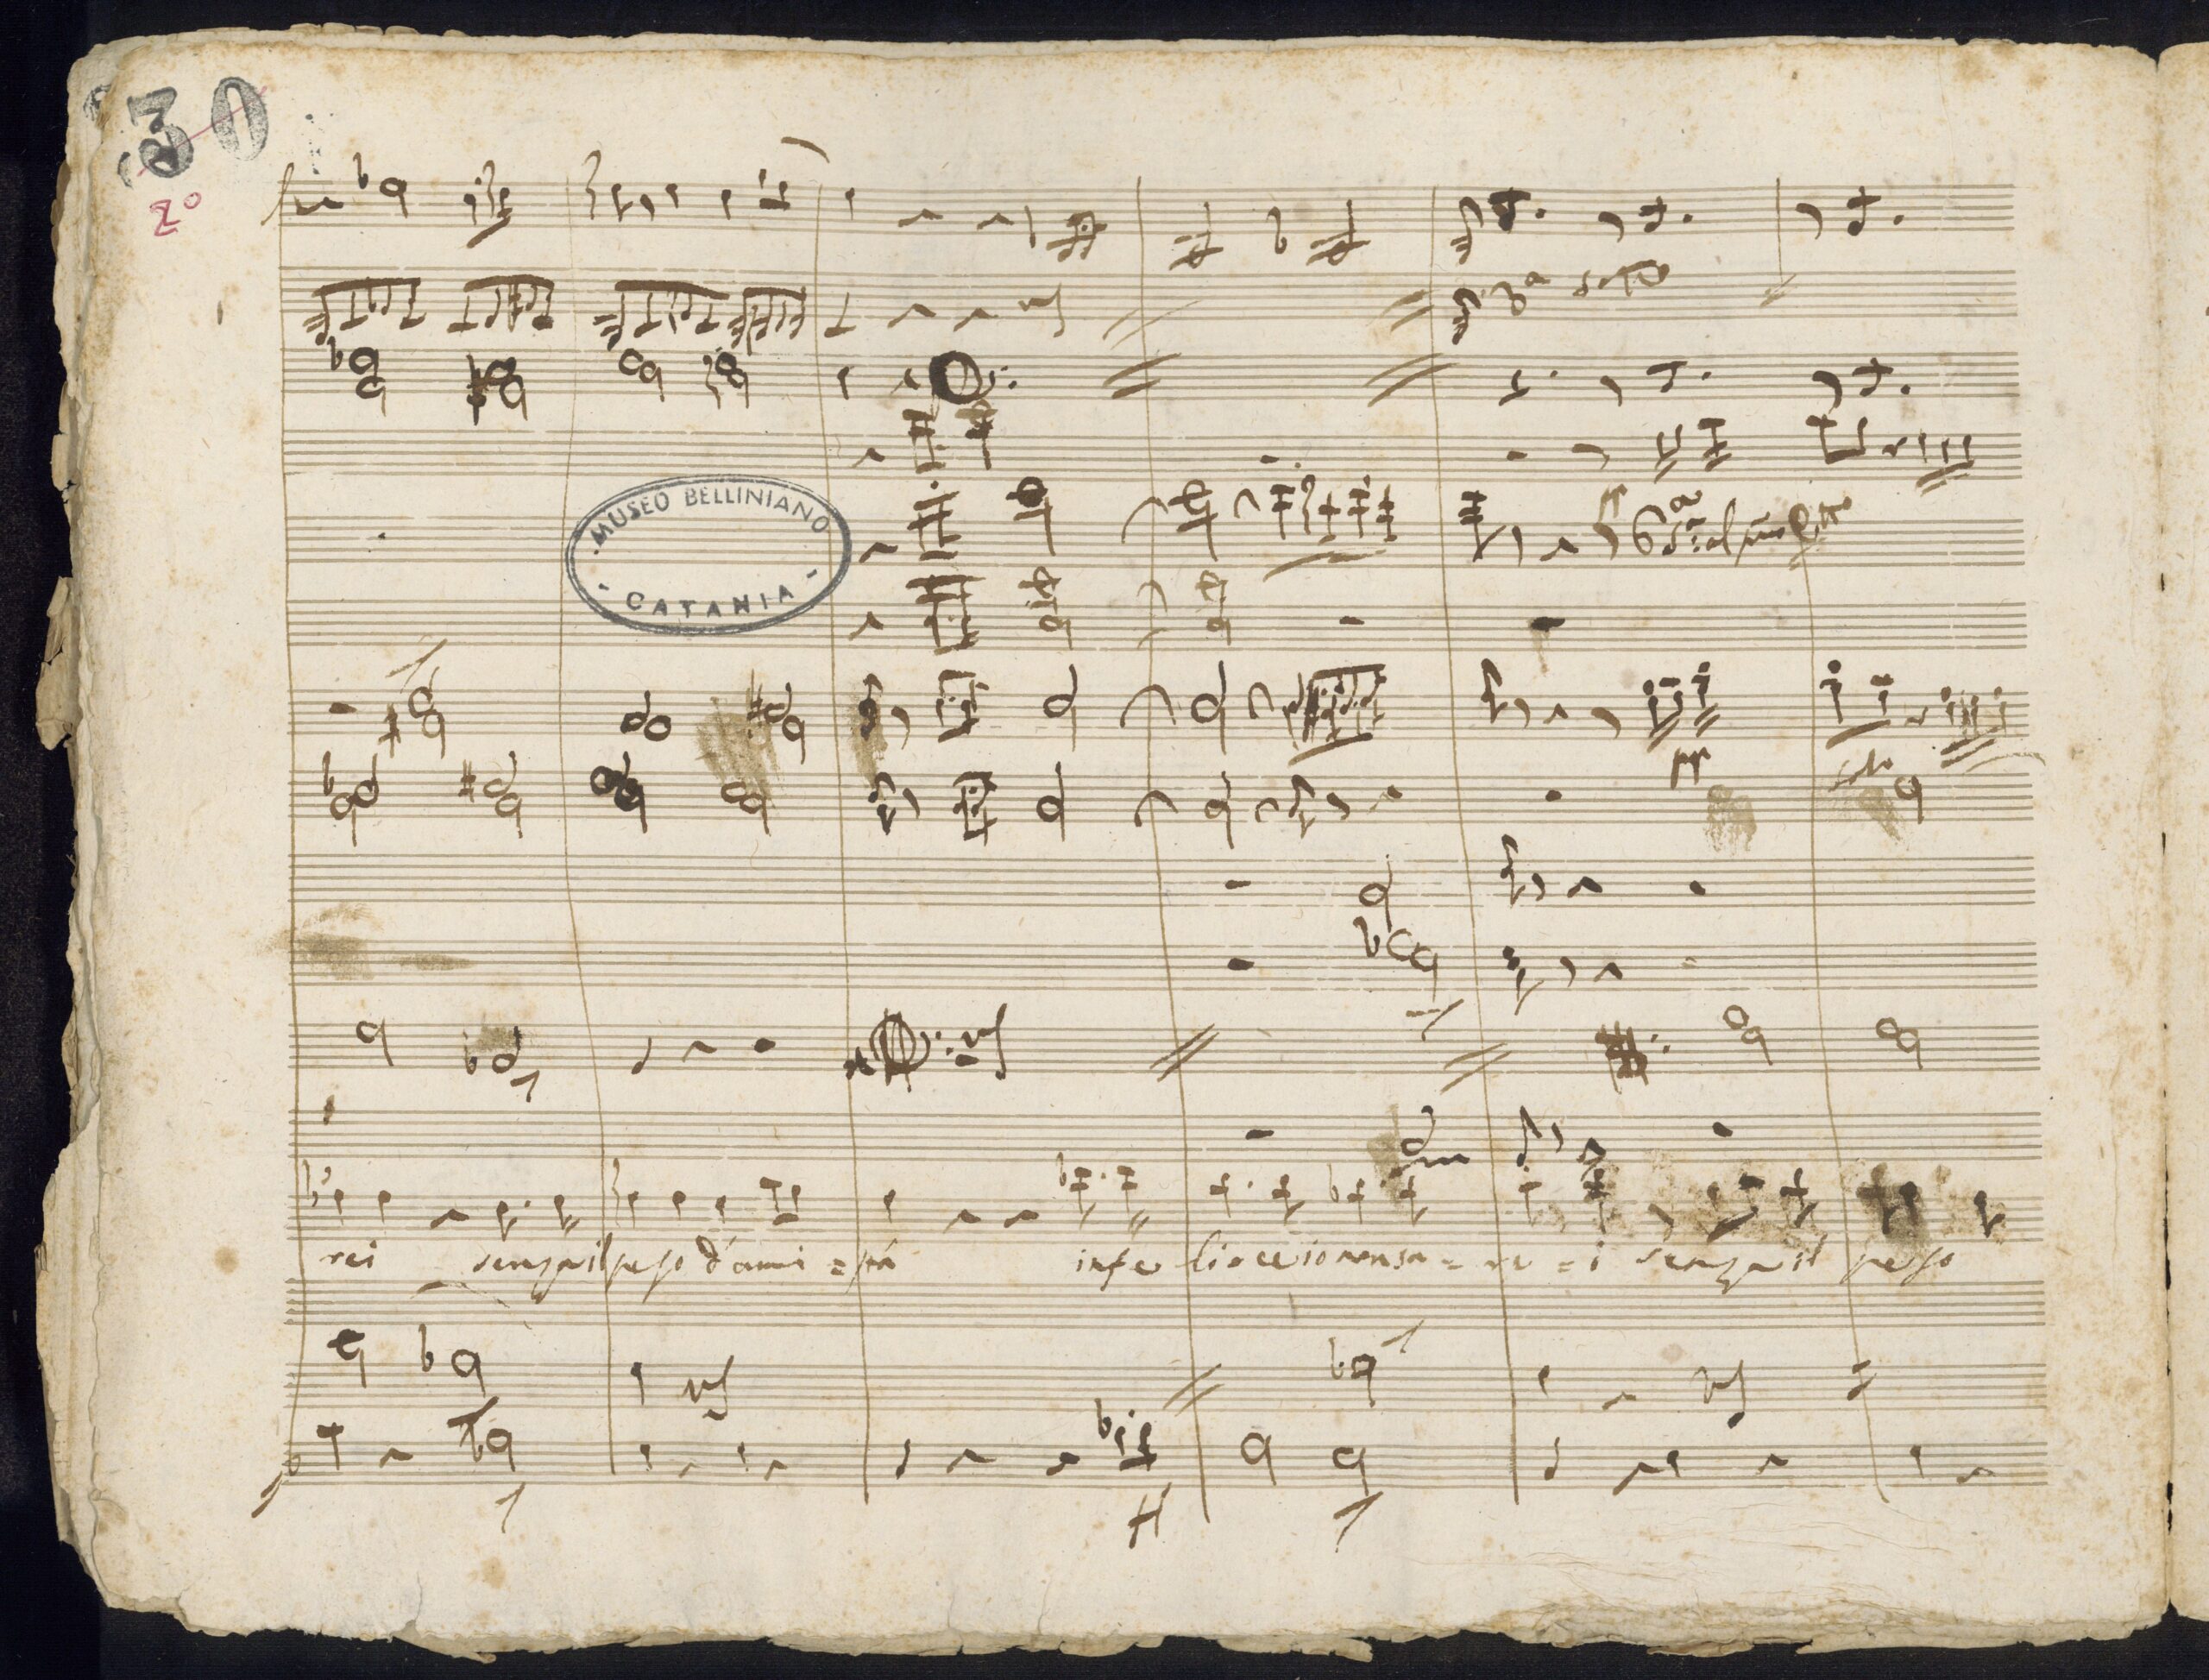 30
2º
3ª sotto
MUSEO BELLINIANO
CATANIA
pp
rei senza il peso d'ami = stá infe lice io non sa = re = i senza il peso